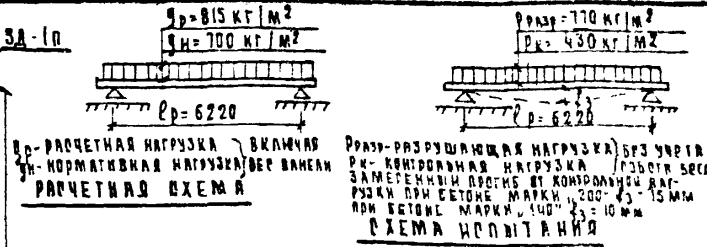 3Д-1п
gр=815 кг/м2
gн=700 кг/м2
ℓр=6220
gр-РАСЧЕТНАЯ НАГРУЗКА ВКЛЮЧАЯ
gн-НОРМАТИВНАЯ НАГРУЗКА ВЕС ПАНЕЛИ
РАСЧЕТНАЯ СХЕМА
Рразр=770 кг/м2
Рк=430 кг/м2
f3
ℓр=6220
Рразр-РАЗРУШАЮЩАЯ НАГРУЗКА БЕЗ УЧЕТА
Рк-КОНТРОЛЬНАЯ НАГРУЗКА
ЗАМЕРЕННЫЙ ПРОГИБ ОТ КОНТРОЛЬНОЙ НАГ-
РУЗКИ ПРИ БЕТОНЕ МАРКИ „200" f3-15ММ
ПРИ БЕТОНЕ МАРКИ „140" f3=10ММ
СХЕМА ИСПЫТАНИЯ